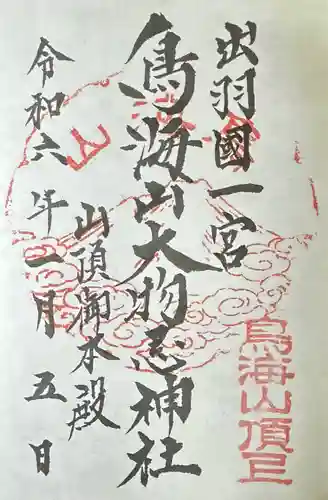 出羽國一宮
鳥海山大物忌神社
山頂御本殿
令和六年一月五日
鳥海山頂